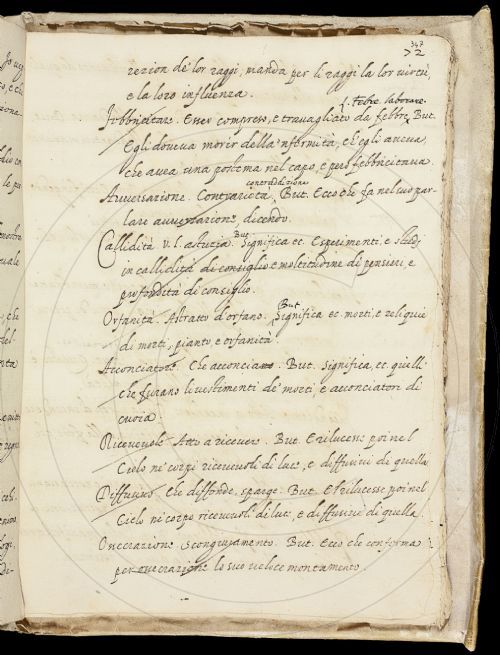 347
72
rezion de' lor raggi, manda per li raggi la lor virtù,
e la loro influenza.
l. Febre laborare.
Febbricitare. Esser compreso, e travagliato da febbre. But.
Egli doveva morir della 'nfermità, ch'egli aveva,
che avea una postema nel capo, e però febbricitava.
contraddizione
Avversazione. Contrarietà. But. Ecco che fa nel suo par-
lare avversazione dicendo.
Callidità V. l. astuzia. But. Significa ec. Esperimenti, e studj
in callidità di consiglio e moltitudine di pensieri, e
profondità di consiglio.
But.
Orfanità. Astratto d'orfano. Significa ec. morti, e reliquie
di morti, pianto, e orfanità.
Acconciatore. Che acconcia. But. Significa, ec. quelli
che furano li vestimenti de' morti, e acconciatori di
cuoia.
Ricevevole. Atto a ricevere. But. E rilucesse poi nel
Cielo ne' corpi ricevevoli di luce, e diffusivi di quella.
Diffusivo. Che diffonde, sparge. But. E rilucesse poi nel
Cielo ne' corpo ricevevoli di luce, e diffusivi di quella.
Osecrazione. Scongiuramento. But. Ecco che conferma
per osecrazione lo suo veloce montamento.